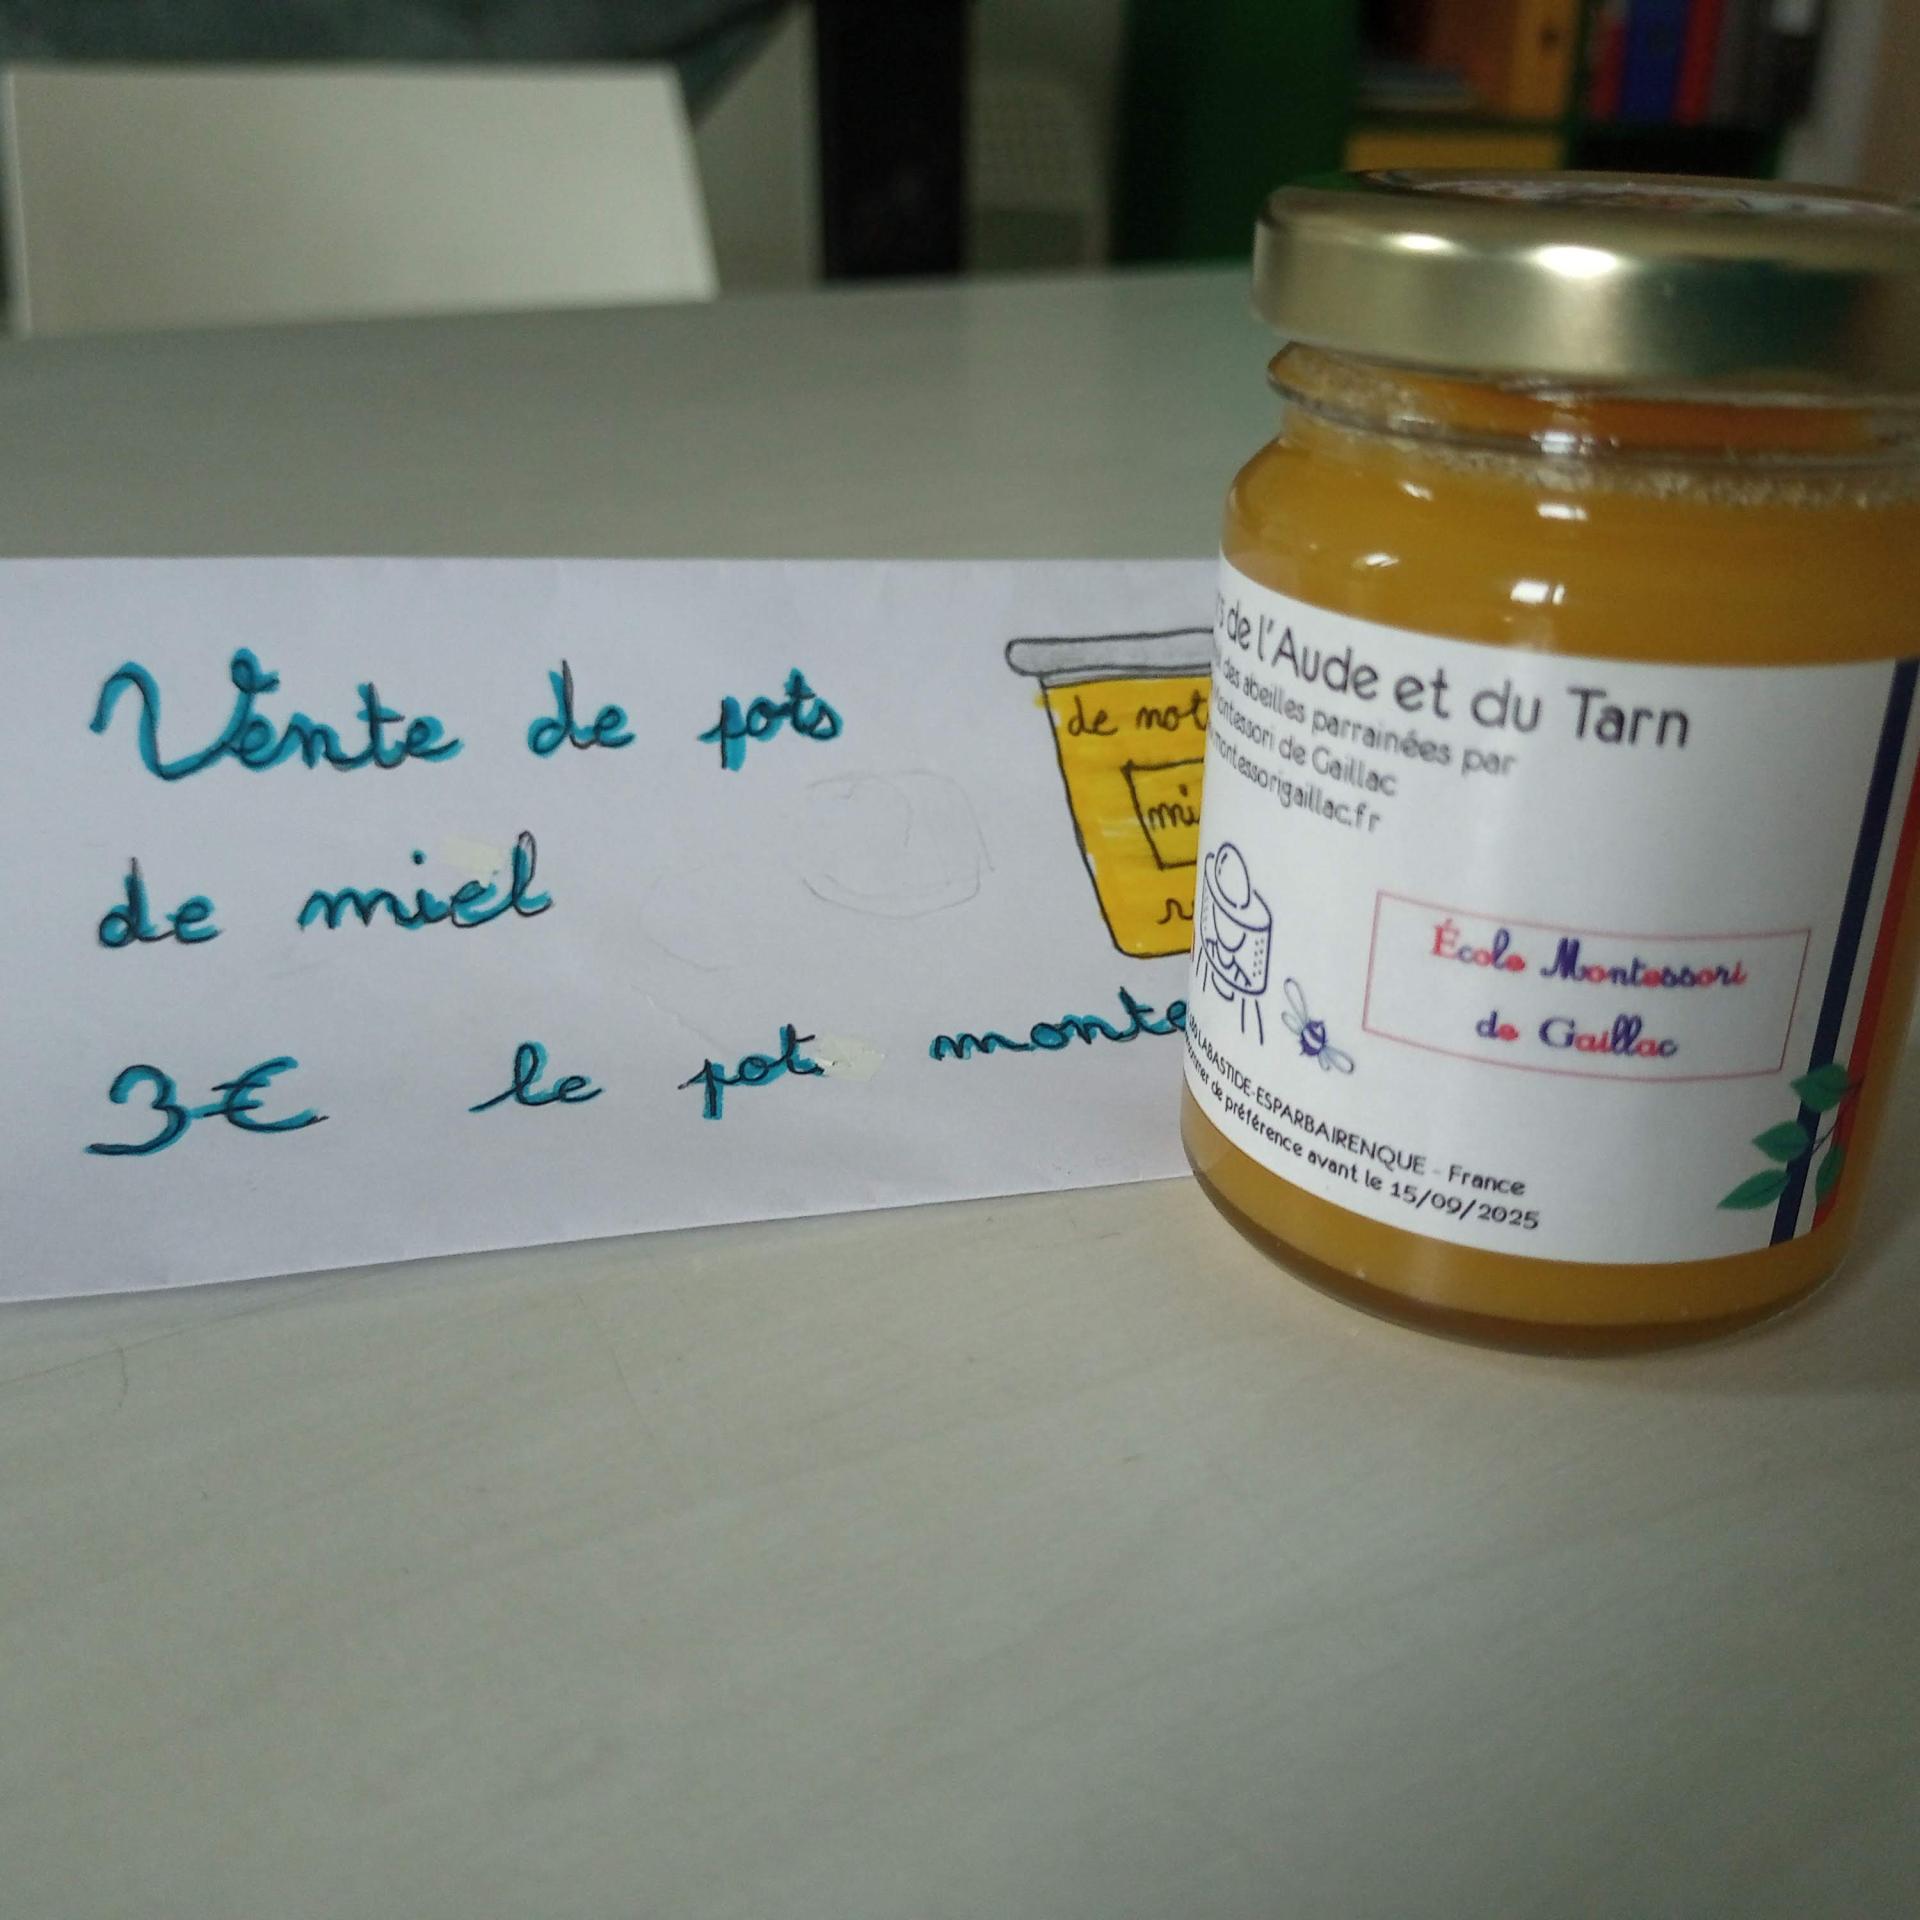 Vente de pots
de miel
3€ le pot
de
de l'Aude et du Tarn
des abeilles parrainées par
Montessori de Gaillac
montessorigaillac.fr
École Montessori
de Gaillac
LABASTIDE-ESPARBAIRENQUE - France
de préférence avant le 15/09/2025